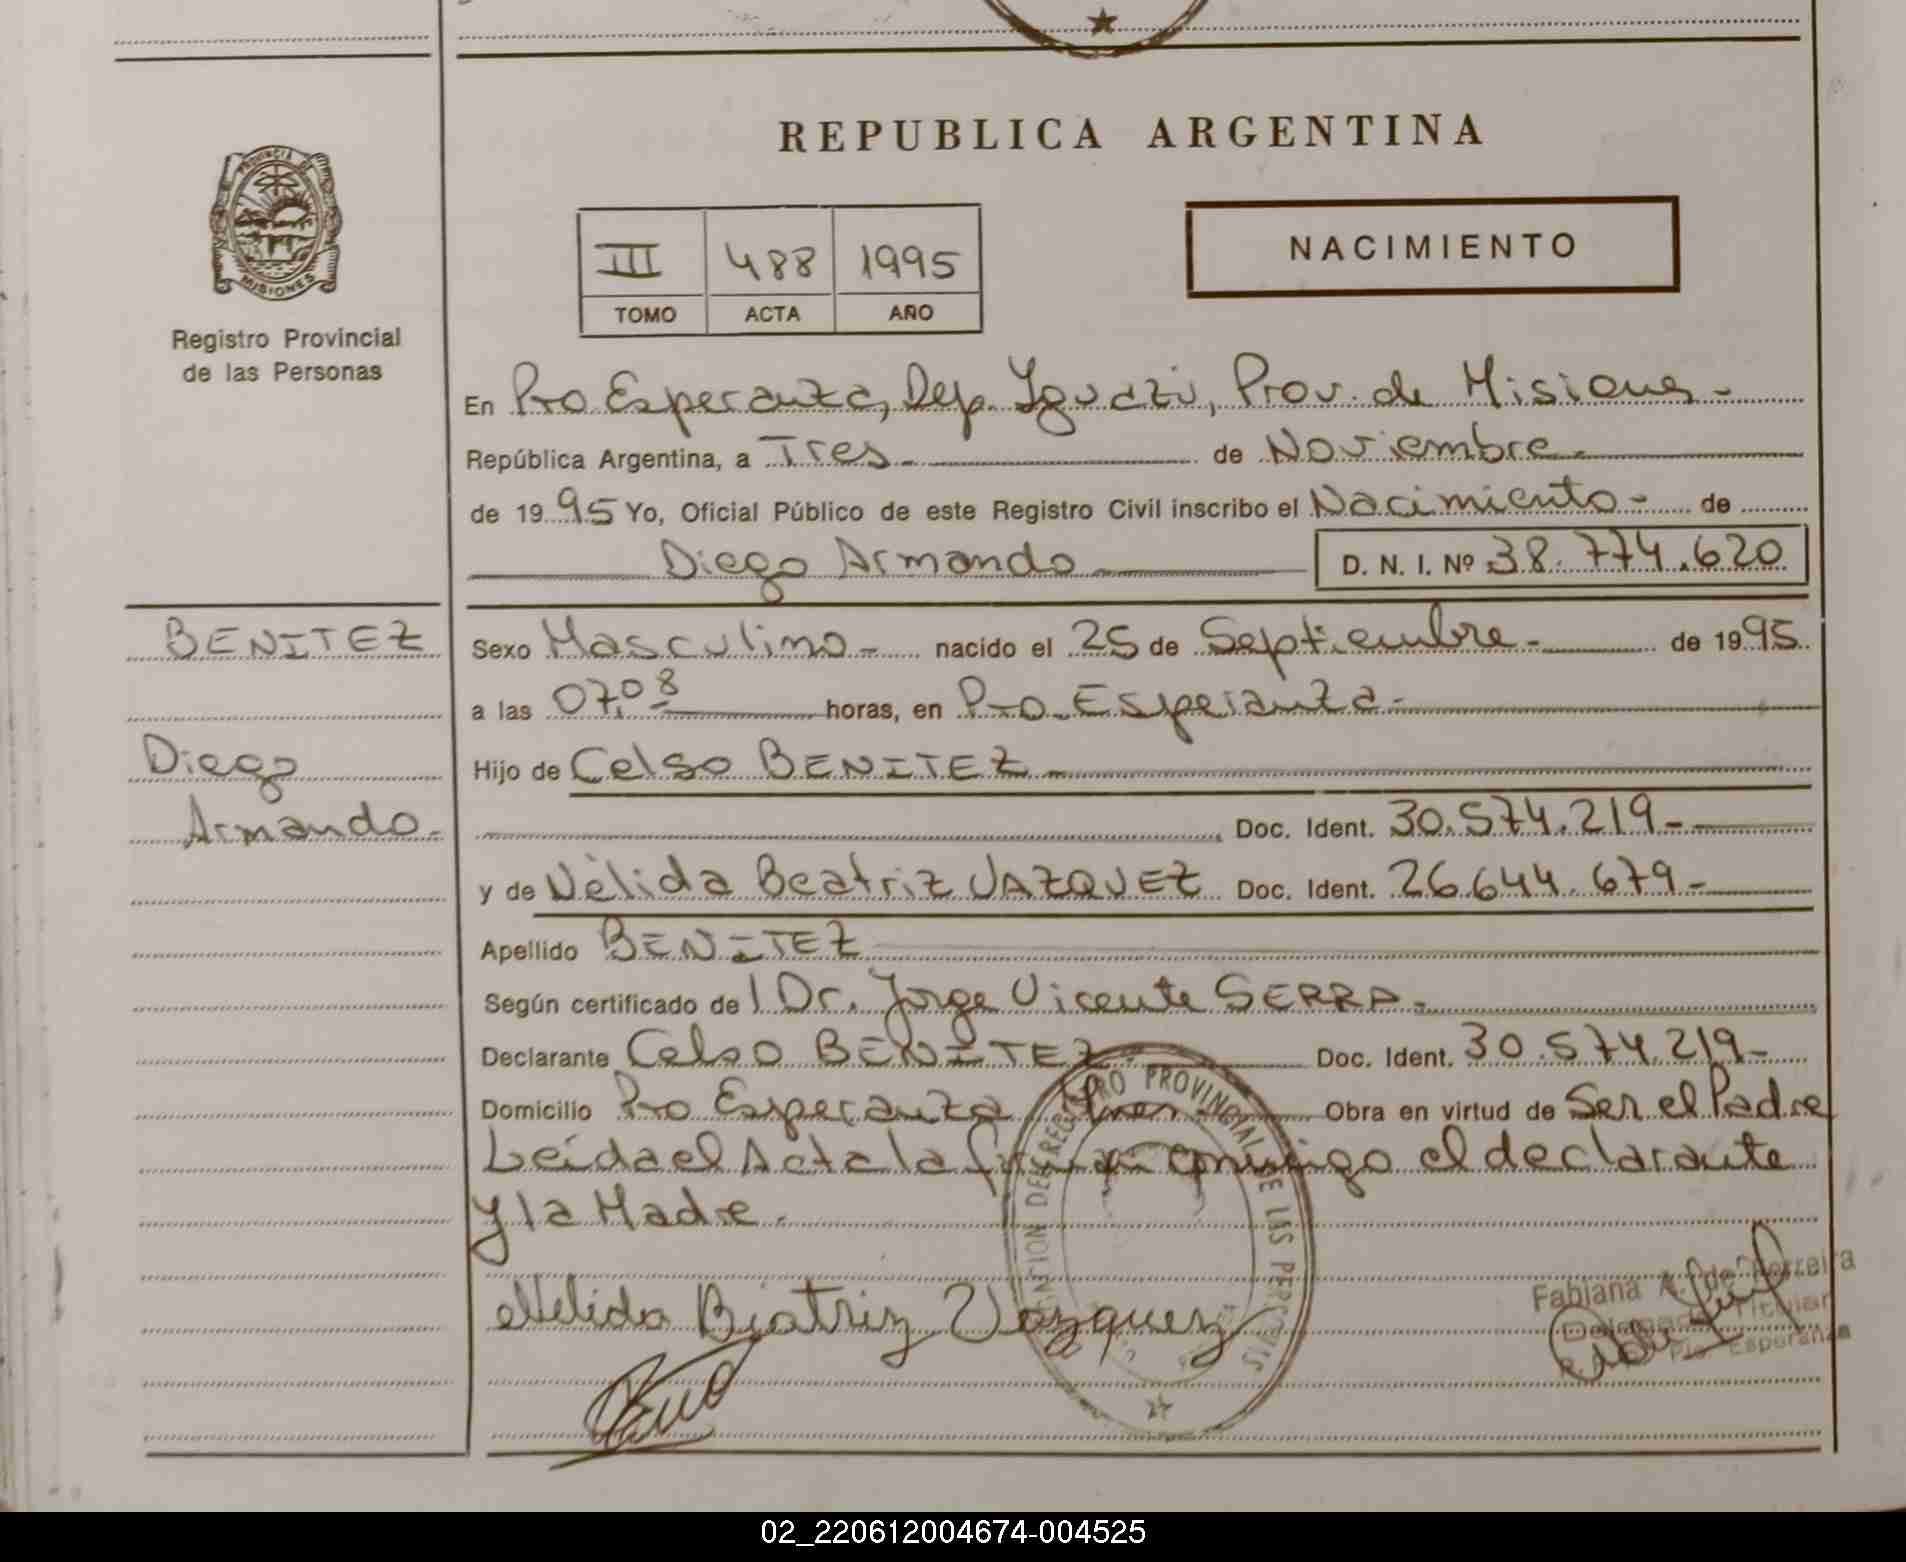 REPUBLICA ARGENTINA
PROVINCIA DE
MISIONES
Registro Provincial
de las Personas
III 488 1995
TOMO ACTA AÑO
NACIMIENTO
En Pto Esperanza, Dep. Iguazú, Prov. de Misiones-
República Argentina, a Tres- de Noviembre-
de 1995 Yo, Oficial Público de este Registro Civil inscribo el Nacimiento- de
Diego Armando D. N. I. Nº 38.774.620
BENITEZ
Diego
Armando-
Sexo Masculino- nacido el 25 de Septiembre- de 1995
a las 07,08 horas, en Pto Esperanza-
Hijo de Celso BENITEZ-
Doc. Ident. 30.574.219-
y de Nélida Beatriz VAZQUEZ Doc. Ident. 26.644.679-
Apellido BENITEZ
Según certificado de l Dr. Jorge Vicente SERRA-
Declarante Celso BENITEZ- Doc. Ident. 30.574.219-
Domicilio Pto Esperanza Obra en virtud de Ser el Padre
Leída el Acta la firman conmigo el declarante
y la Madre.
Nelida Biatriz Vazquez
REGISTRO PROVINCIAL DE LAS PERSONAS
Fabiana A. de Ferreira
Delegada Titular
Pto. Esperanza
02_220612004674-004525